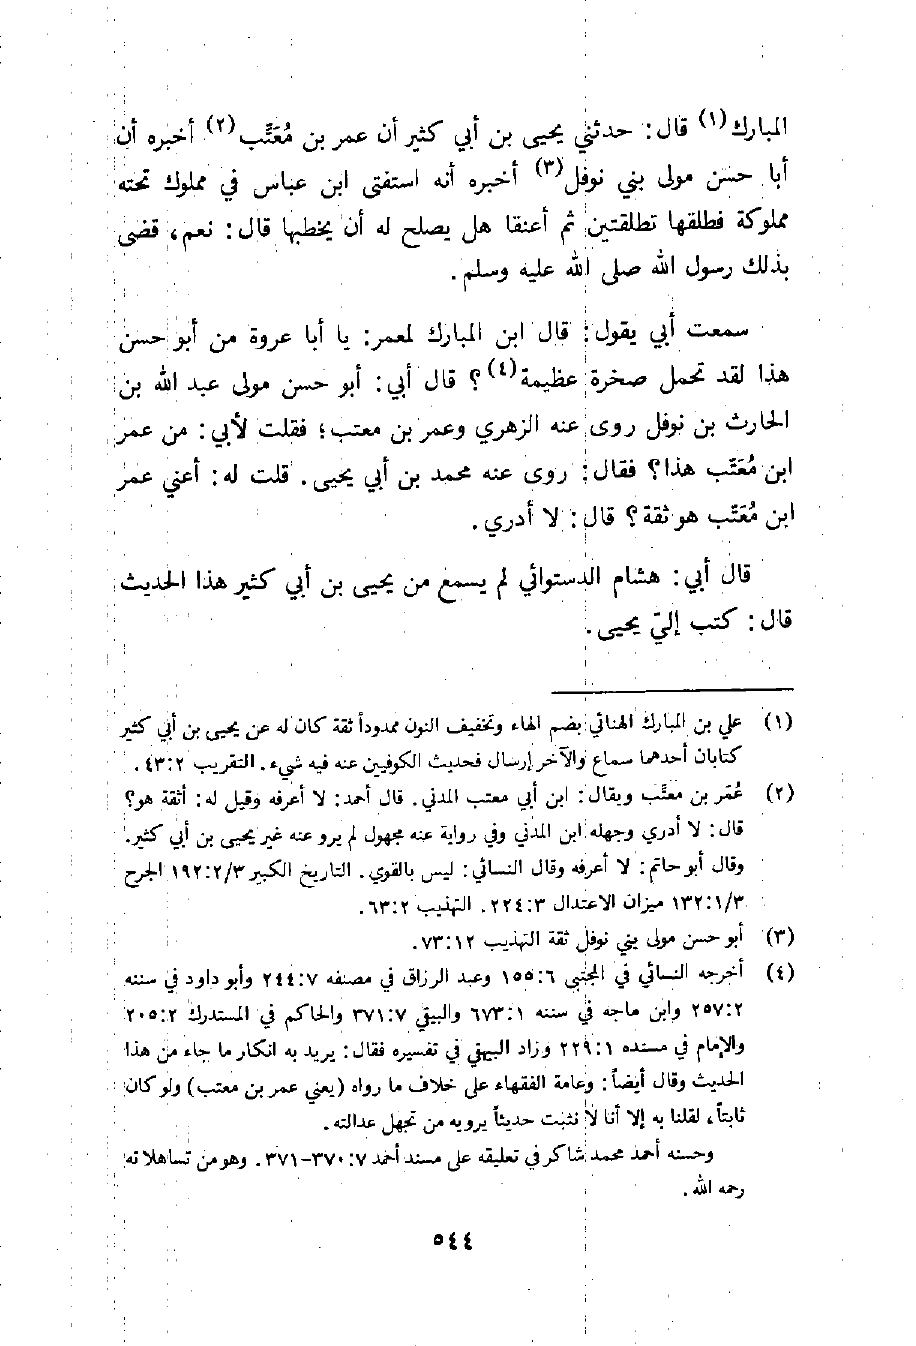 المبارك(١) قال: حدثني يحيى بن أبي كثير أن عمر بن مُعَتِّب(٢) أخبره أن
أبا حسن مولى بني نوفل(٣) أخبره أنه استفتى ابن عباس في مملوك تحته
مملوكة فطلقها تطلقتين ثم أعنقا هل يصلح له أن يخطبها قال: نعم، قضى
بذلك رسول الله صلى الله عليه وسلم.
سمعت أبي يقول: قال ابن المبارك لمعمر: يا أبا عروة من أبو حسن
هذا لقد تحمل صخرة عظيمة(٤)؟ قال أبي: أبو حسن مولى عبد الله بن
الحارث بن نوفل روى عنه الزهري وعمر بن معتب؛ فقلت لأبي: من عمر
ابن مُعَتّب هذا؟ فقال: روى عنه محمد بن أبي يحيى. قلت له: أعني عمر
ابن مُعَتّب هو ثقة؟ قال: لا أدري.
قال أبي: هشام الدستوائي لم يسمع من يحيى بن أبي كثير هذا الحديث
قال: كتب إليّ يحيى.
(١) علي بن المبارك الهنائي بضم الهاء وتخفيف النون ممدوداً ثقة كان له عن يحيى بن أبي كثير
كتابان أحدهما سماع والآخر إرسال فحديث الكوفيين عنه فيه شيء. التقريب ٤٣:٢.
(٢) عُمَر بن معتَّب ويقال: ابن أبي معتب المدني. قال أحمد: لا أعرفه وقيل له: أثقة هو؟
قال: لا أدري وجهله ابن المدني وفي رواية عنه مجهول لم يرو عنه غير يحيى بن أبي كثير.
وقال أبو حاتم: لا أعرفه وقال النسائي: ليس بالقوي. التاريخ الكبير ١٩٢:٢/٣ الجرح
١٣٢:١/٣ ميزان الاعتدال ٢٢٤:٣. التهذيب ٦٣:٢.
(٣) أبو حسن مولى بني نوفل ثقة التهذيب ٧٣:١٢.
(٤) أخرجه النسائي في المجتبى ١٥٥:٦ وعبد الرزاق في مصنفه ٢٤٤:٧ وأبو داود في سننه
٢٥٧:٢ وابن ماجه في سننه ٦٧٣:١ والبيقي ٣٧١:٧ والحاكم في المستدرك ٢٠٥:٢
والإمام في مسنده ٢٢٩:١ وزاد البيهقي في تفسيره فقال: يريد به انكار ما جاء من هذا
الحديث وقال أيضاً: وعامة الفقهاء على خلاف ما رواه (يعني عمر بن معتب) ولو كان
ثابتاً، لقلنا به إلا أنا لا نثبت حديثاً يرويه من تجهل عدالته.
وحسنه أحمد محمد شاكر في تعليقه على مسند أحمد ٣٧٠:٧-٣٧١. وهو من تساهلاته
رحمه الله.
٥٤٤